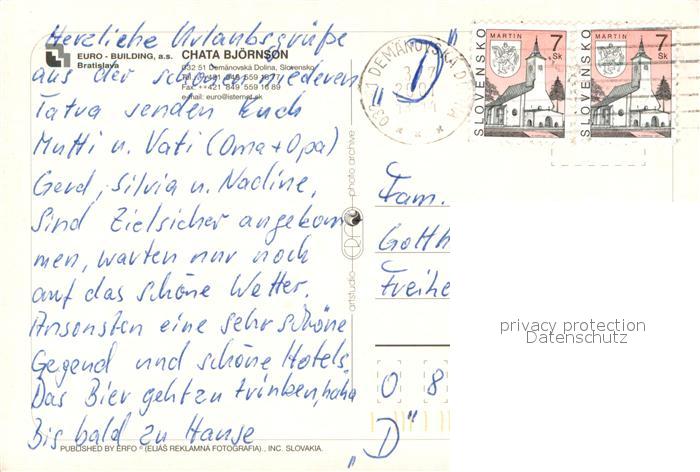 Herzliche Urlaubsgrüße
EURO - BUILDING, a.s.
Bratislava
CHATA BJÖRNSON
032 51 Demänovská Dolina, Slovensko
aus der schönen Niederen
Tel.: ++421 849 559 16 77
Fax: ++421 849 559 16 89
e-mail: euro@isternet.sk
Tatra senden Euch
Mutti u. Vati (Oma + Opa)
Gerd, Silvia u. Nadine,
Sind Zielsicher angekom
men, warten nur noch
auf das schöne Wetter.
Ansonsten eine sehr schöne
Gegend und schöne Hotels.
Das Bier geht zu trinken, haha
Bis bald zu Hause
PUBLISHED BY ERFO © (ELIÁŠ REKLAMNÁ FOTOGRAFIA)., INC. SLOVAKIA.
artstudio ERFO photo archive
"D"
DEMÄNOVSKÁ D
SLOVENSKO
MARTIN 7
Sk
SLOVENSKO
MARTIN 7
Sk
Fam.
Gotth
Freihe
0 8
"D"
privacy protection
Datenschutz